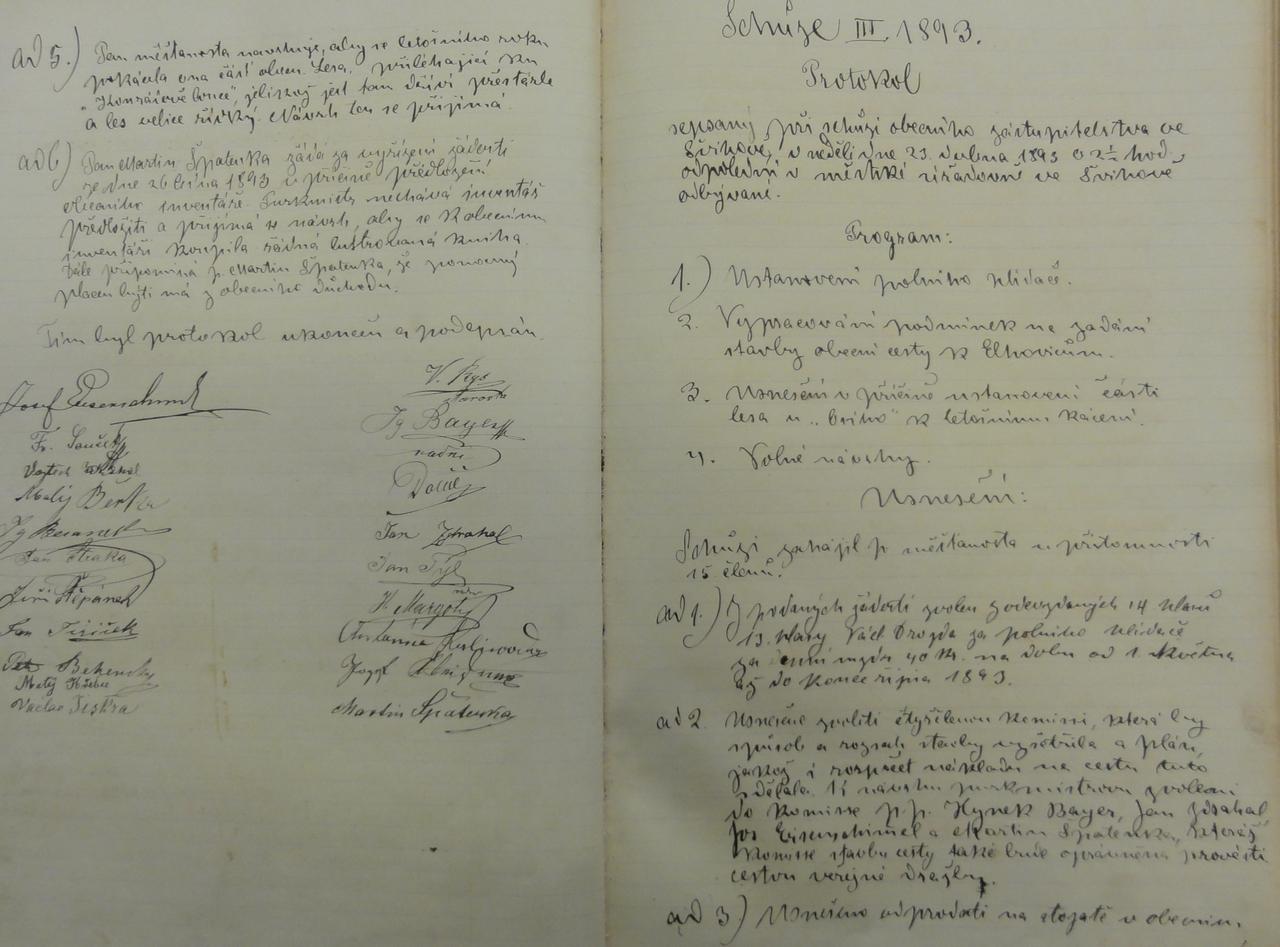 ad 5.) Pan měštanosta navrhuje, aby se letošního roku
pokácela ona část obecn. lesa, přiléhající ku
jelikož jest tam dříví přestárlé
a les velice řídký. Návrh ten se přijímá.
ad 6) Pan Martin Špatenka žádá za vyřízení žádosti
ze dne 26 1893 v příčině předložení
obecního inventáře. Purkmistr nechává inventář
předložiti a přijímá se návrh, aby se k obecnímu
inventáři koupila řádná kniha.
Dále připomíná p. Martin Špatenka, že ponocný
placen býti má z obecního důchodu.
Tím byl protokol ukončen a podepsán.
Josef
Fr.
Matěj Berka
Jg
Jan Straka
Jiří Štěpánek
Jan
Matěj
Václav Jiskra
V.
starosta
Jg Bayer
radní
Jan Zdrahal
Jan Tyl
Josef
Martin Špatenka
Schůze III. 1893.
Protokol
sepsaný při schůzi obecního zástupitelstva ve
Švihově, v neděli dne 23. dubna 1893 o 2½ hod.
odpoledne v městské úřadovně ve Švihově
odbývané.
Program:
1.) Ustanovení polního hlídače.
2. Vypracování podmínek na zadání
stavby obecní cesty k Elhovicům.
3. Usnesení v příčině ustanovení části
lesa u k letošnímu kácení.
4. Volné návrhy.
Usnešení:
Schůzi zahájil p. měštanosta u přítomnosti
15 členů.
ad 1.) Z podaných žádostí zvolen z odevzdaných 14 hlasů
13. hlasy Václ. Drozda za polního hlídače
za denní mzdu 40 kr. na dobu od 1. května
až do konce října 1893.
ad 2. Usnešeno zvoliti čtyřčlenou komisi, která by
spůsob a rozsah stavby vyšetřila a plán,
jakož i rozpočet nákladu na cestu tuto
zdělala. K návrhu purkmistrovu zvoleni
do komisse p.p. Hynek Bayer, Jan Zdrahal,
Jos Eisenschimel a Martin Špatenka, kteráž
komisse stavbu cesty také bude oprávněna provésti
cestou veřejné dražby.
ad 3) Usnešeno odprodati na stojatě v obecním